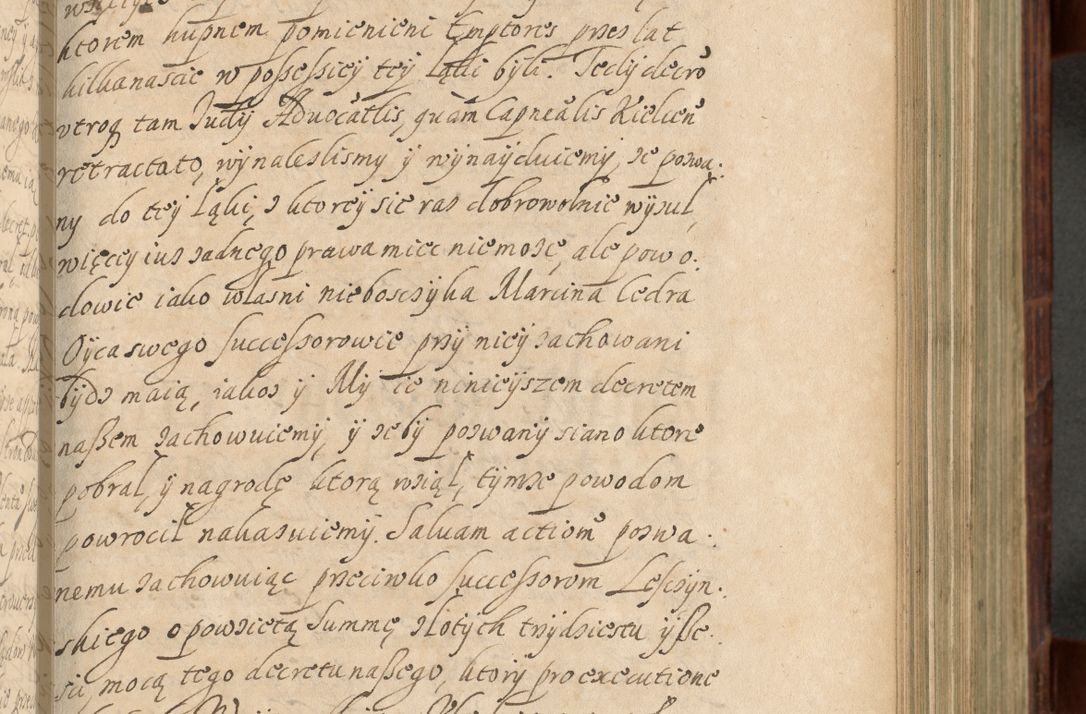 ktorem kupnem pomienieni Emptores przes lat
kilkanascie w possessiey tey Łąki byli. Tedy decrō
utroq tam Judÿ Advocatlis, quam Capnealis Kielcen
retractato, wÿnalesliśmy ÿ wÿnaÿduiemÿ, ze pozwa.
ny do teÿ Łąki, z ktoreÿ sie raz dobrowolnie wÿzuł,
więcey iuz zadnego prawa miec niemoze, ale powo.
dowie iako własni nieboszczÿka Marcina Cedra
Oÿca swego successorowie przÿ nieÿ zachowani
bÿdz maią, iakoz ÿ Mÿ ie ninieÿszem decretem
naszem zachowuiemÿ, ÿ zebÿ pozwanÿ siano ktore
pobrał, ÿ nagrodę ktorą wziął, tÿmze powodom
powrocił nakazuiemÿ. Salvam actionē pozwa.
nemu zachowuiąc przeciwko successorom Leszczÿn.
skiego o powzietą Summę złotÿch trzÿdziestu ÿ sze.
sci mocą tego decretu naszego, ktorÿ pro executione